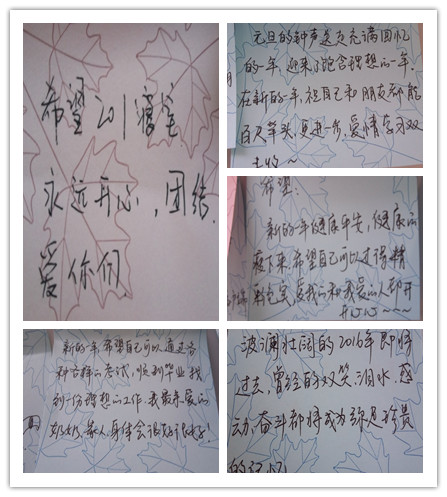 希望201寝室
永远开心,团结,
爱你们
元旦的钟声送走充满回忆
的一年,迎来了饱含理想的一年。
在新的一年,祝自己和朋友都能
百尺竿头,更进一步,爱情学习双
丰收~
希望:
新的一年健康平安,健康的
瘦下来,希望自己可以过得精
彩充实,爱我的和我爱的人都开
开心心~~~
新的一年,希望自己可以通过各
种各样的考试,顺利毕业,找
到一份理想的工作,我最亲爱的
奶奶,家人,身体会很好很好!
波澜壮阔的2016年即将
过去,曾经的欢笑、泪水、感
动、奋斗都将成为弥足珍贵
的记忆